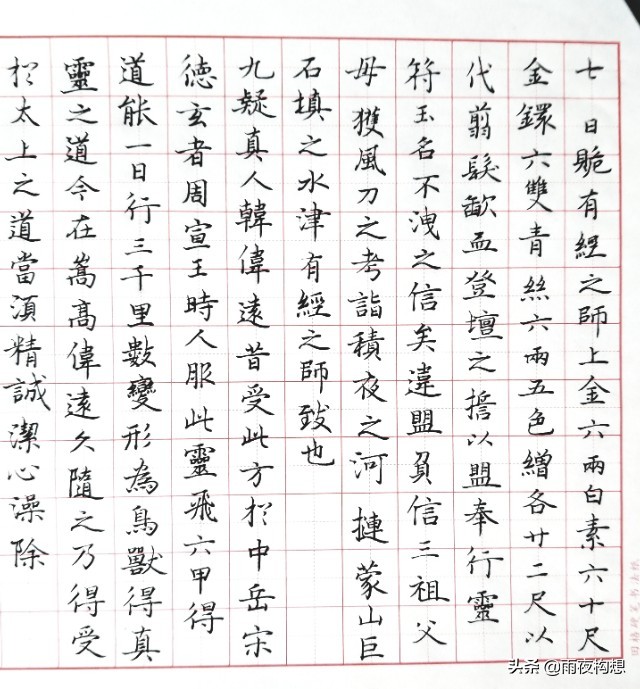 七日跪有經之師上金六兩白素六十尺
金鐶六雙青絲六兩五色繒各廿二尺以
代翦髮歃血登壇之誓以盟奉行靈
符玉名不洩之信矣違盟負信三祖父
母獲風刀之考詣積夜之河摙蒙山巨
石填之水津有經之師致也
九疑真人韓偉遠昔受此方於中岳宋
德玄者周宣王時人服此靈飛六甲得
道能一日行三千里數變形為鳥獸得真
靈之道今在嵩高偉遠久隨之乃得受
於太上之道當須精誠潔心澡除
头条 @雨夜构想